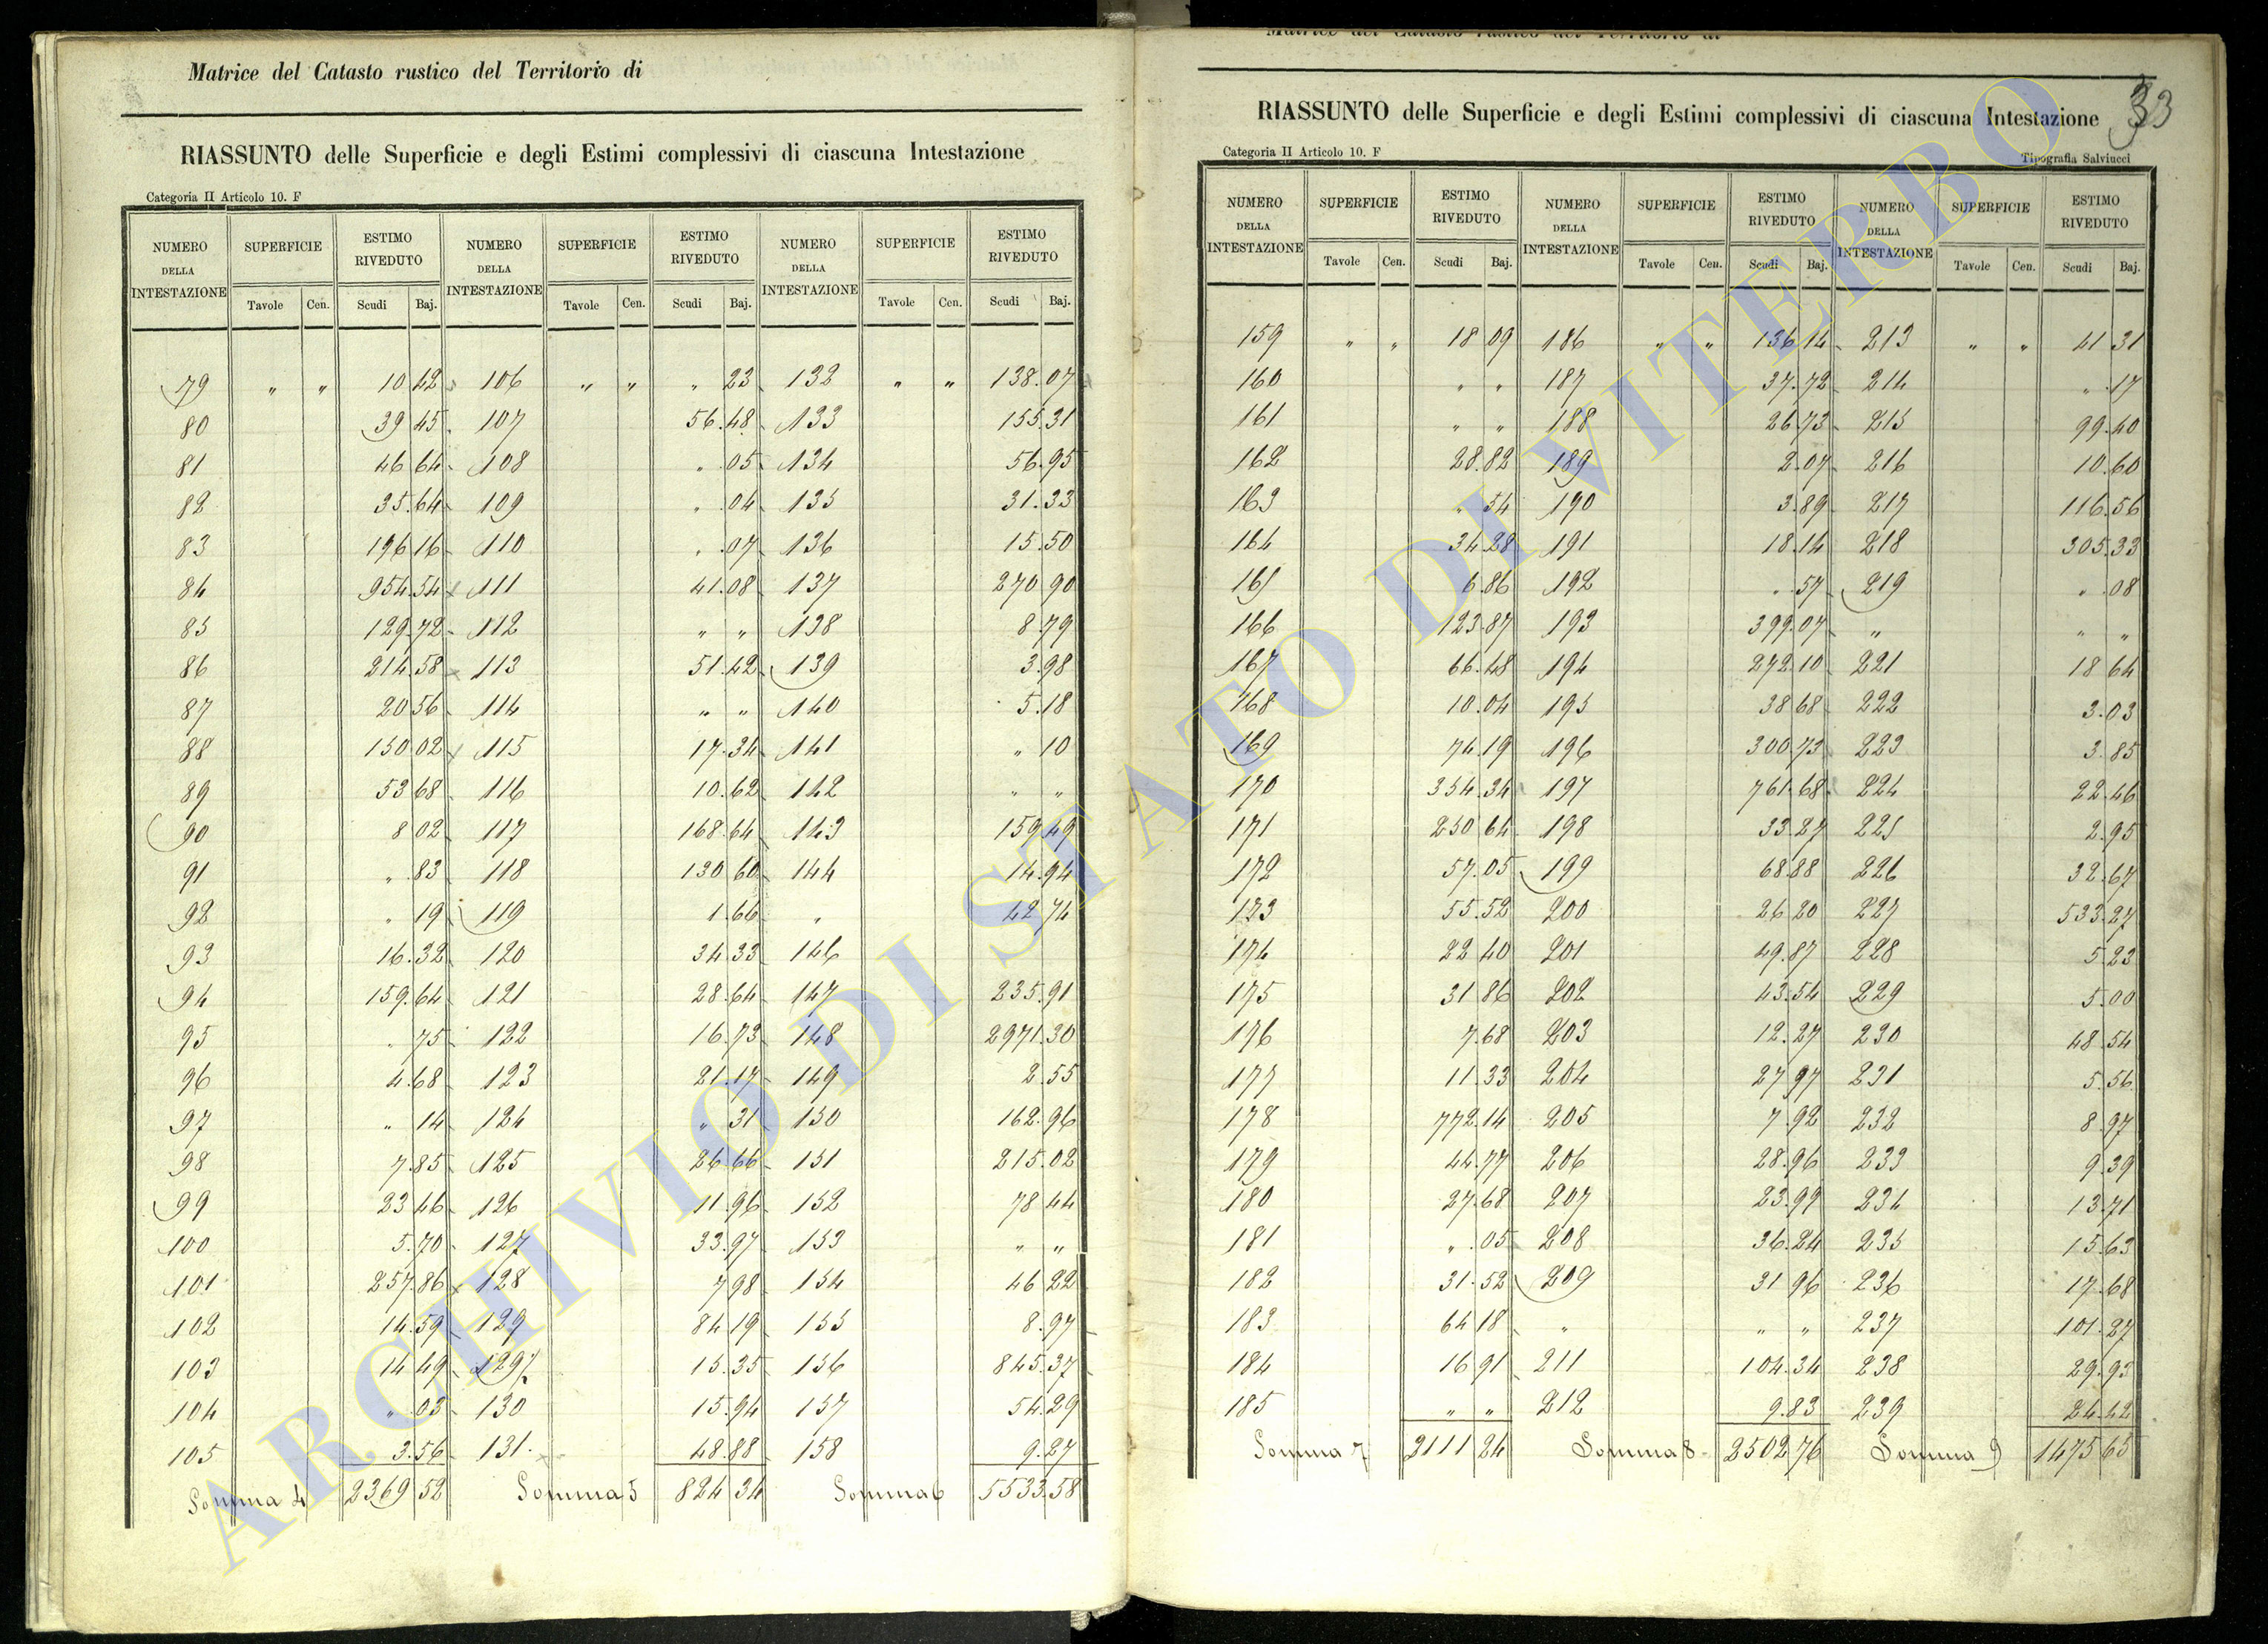 Matrice del Catasto rustico del Territorio di
RIASSUNTO delle Superficie e degli Estimi complessivi di ciascuna Intestazione
Categoria II Articolo 10. F
NUMERO DELLA INTESTAZIONE SUPERFICIE ESTIMO RIVEDUTO NUMERO DELLA INTESTAZIONE SUPERFICIE ESTIMO RIVEDUTO NUMERO DELLA INTESTAZIONE SUPERFICIE ESTIMO RIVEDUTO
Tavole Cen. Scudi Baj. Tavole Cen. Scudi Baj. Tavole Cen. Scudi Baj.
79 " " 10 42 106 " " " 23 132 " " 138.07
80 39 45 107 56.48 133 155.31
81 46 64 108 " .05 134 56.95
82 35.64 109 " .04 135 31.33
83 196 16 110 " .07 136 15.50
84 954.54 111 41.08 137 270 90
85 129.72 112 " " 138 8 79
86 214.58 113 51.42 139 3.98
87 20 56 114 " " 140 5.18
88 150 02 115 17.34 141 " 10
89 53 68 116 10.62 142 " "
90 8 02 117 168.64 143 159 49
91 " .83 118 130 60 144 14.94
92 " 19 119 1.66 " 42 74
93 16.32 120 34 33 146
94 159.64 121 28.64 147 235.91
95 " 75 122 16.73 148 2971.30
96 4.68 123 21.17 149 2.55
97 " 14 124 " 31 150 162.96
98 7.85 125 26 66 151 215.02
99 23 46 126 11.96 152 78 44
100 5.70 127 33.97 153 " "
101 257.86 128 7 98 154 46 22
102 14.59 129 84 19 155 8.97
103 14 49 129½ 15.35 156 845.37
104 " .03 130 15.94 157 54.29
105 3.56 131 48.88 158 9.27
Somma 4 2369 52 Somma 5 824 34 Somma 6 5533.58
Matrice del Catasto rustico del Territorio di
RIASSUNTO delle Superficie e degli Estimi complessivi di ciascuna Intestazione 33
Categoria II Articolo 10. F Tipografia Salviucci
NUMERO DELLA INTESTAZIONE SUPERFICIE ESTIMO RIVEDUTO NUMERO DELLA INTESTAZIONE SUPERFICIE ESTIMO RIVEDUTO NUMERO DELLA INTESTAZIONE SUPERFICIE ESTIMO RIVEDUTO
Tavole Cen. Scudi Baj. Tavole Cen. Scudi Baj. Tavole Cen. Scudi Baj.
159 " " 18 09 186 " " 136 14 213 " " 41 31
160 " " 187 37.72 214 " .17
161 " " 188 26 73 215 99.40
162 28.82 189 2.07 216 10.60
163 " 54 190 3.89 217 116.56
164 34 28 191 18.14 218 305.33
165 6.86 192 " .57 219 " .08
166 123.87 193 399.07 " " "
167 66.48 194 272.10 221 18 64
168 10.04 195 38 68 222 3.03
169 74.19 196 300 73 223 3.85
170 354.34 197 761.68 224 22.46
171 250 64 198 33.27 225 2.95
172 57.05 199 68.88 226 32.67
173 55.52 200 26 20 227 533.27
174 22 40 201 49.87 228 5.23
175 31 86 202 43.54 229 5.00
176 7.68 203 12.27 230 48.54
177 11.33 204 27 97 231 5.56
178 772.14 205 7.92 232 8.97
179 44.77 206 28.96 233 9.39
180 27.68 207 23.99 234 13.71
181 " .05 208 36.24 235 15.63
182 31.52 209 31 96 236 17.68
183 64 18 " " " 237 101.27
184 16 91 211 104.34 238 29.93
185 " " 212 9.83 239 24.42
Somma 7 2111 24 Somma 8 2502 76 Somma 9 1475 65
ARCHIVIO DI STATO DI VITERBO